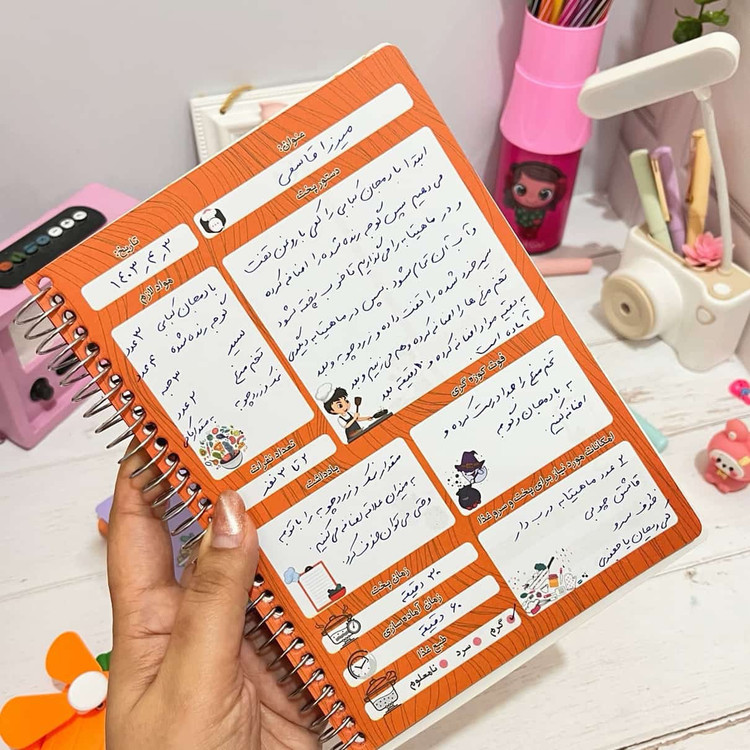 عنوان:
میرزا قاسمی
تاریخ:
۱۴۰۳,۴,۳
دستور پخت
ابتدا بادمجان کبابی را کمی با روغن تفت
می دهیم سپس گوجه رنده شده را اضافه کرده
و در ماهیتابه را می گذاریم تا خوب پخته شود
و آب آن تمام شود. سپس در ماهیتابه دیگری
سیر خرد شده را تفت داده و زردچوبه و بعد
تخم مرغ ها را اضافه کرده و هم می زنیم و بعد
به بقیه مواد اضافه کرده و دقیقه بعد
آماده است.
مواد لازم
بادمجان کبابی ۳ عدد
گوجه رنده شده ۴ عدد
سیر ۳ حبه
تخم مرغ ۲ عدد
نمک زردچوبه
تعداد نفرات
۲ تا ۳ نفر
فوت کوزه گری
تخم مرغ را جدا درست کرده و
به بادمجان و گوجه
اضافه کنیم
یادداشت
مقدار نمک و زردچوبه را با توجه
به میزان علاقه اضافه می کنیم
وحتی می توان حذف کرد.
امکانات مورد نیاز برای پخت و سرو غذا
۲ عدد ماهیتابه درب دار
قاشق چوبی
ظرف سرو
کمی ریحان یا جعفری
زمان پخت
۳۰ دقیقه
زمان آماده سازی
۶۰ دقیقه
طبع غذا
گرم سرد نامعلوم